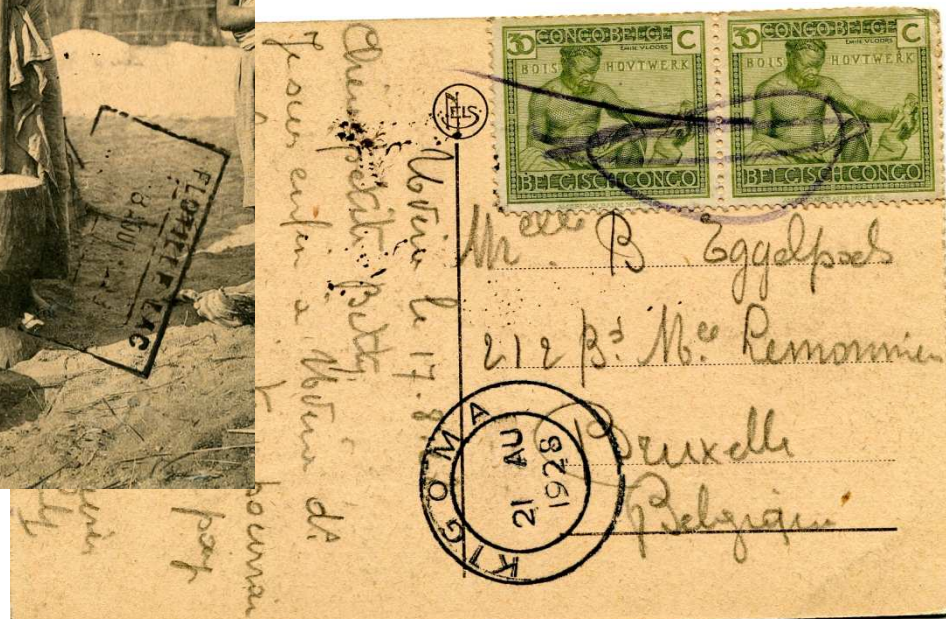 30 CONGO BELGE C
EMILE VLOORS
BOIS HOVTWERK
BELGISCH CONGO
30 CONGO BELGE C
EMILE VLOORS
BOIS HOVTWERK
BELGISCH CONGO
NELS
Melle B Eggelpoels
212 Bd Mce Lemonnier
Bruxelle
Belgique
KIGOMA
21 AU
1928
Uvira le 17.8
Chère petite Betty
Je suis enfin a Uvira
pourrai
FLOTILLE LAC